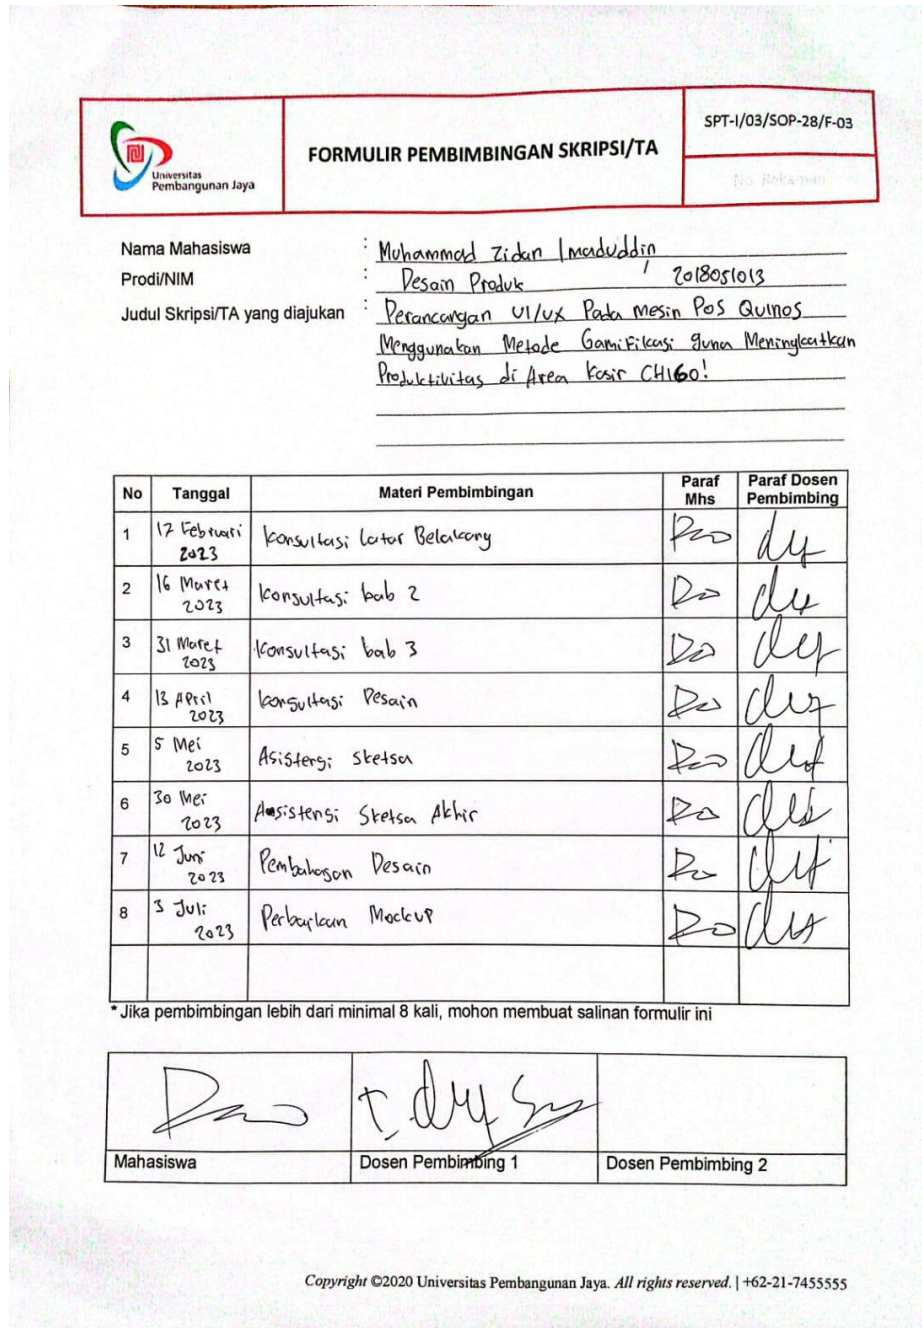 Universitas
Pembangunan Jaya
FORMULIR PEMBIMBINGAN SKRIPSI/TA
SPT-I/03/SOP-28/F-03
No. Rekaman
Nama Mahasiswa : Muhammad Zidan Imaduddin
Prodi/NIM : Desain Produk / 2018051013
Judul Skripsi/TA yang diajukan : Perancangan UI/UX Pada mesin POS Quinos
Menggunakan Metode Gamifikasi guna Meningkatkan
Produktivitas di Area Kasir CHIGO!
No Tanggal Materi Pembimbingan Paraf Mhs Paraf Dosen Pembimbing
1 17 Februari 2023 Konsultasi Latar Belakang
2 16 Maret 2023 Konsultasi bab 2
3 31 Maret 2023 Konsultasi bab 3
4 13 April 2023 Konsultasi Desain
5 5 Mei 2023 Asistensi Sketsa
6 30 Mei 2023 Assistensi Sketsa Akhir
7 12 Juni 2023 Pembahasan Desain
8 3 Juli 2023 Perbaikan Mockup
* Jika pembimbingan lebih dari minimal 8 kali, mohon membuat salinan formulir ini
Mahasiswa Dosen Pembimbing 1 Dosen Pembimbing 2
Copyright ©2020 Universitas Pembangunan Jaya. All rights reserved. | +62-21-7455555